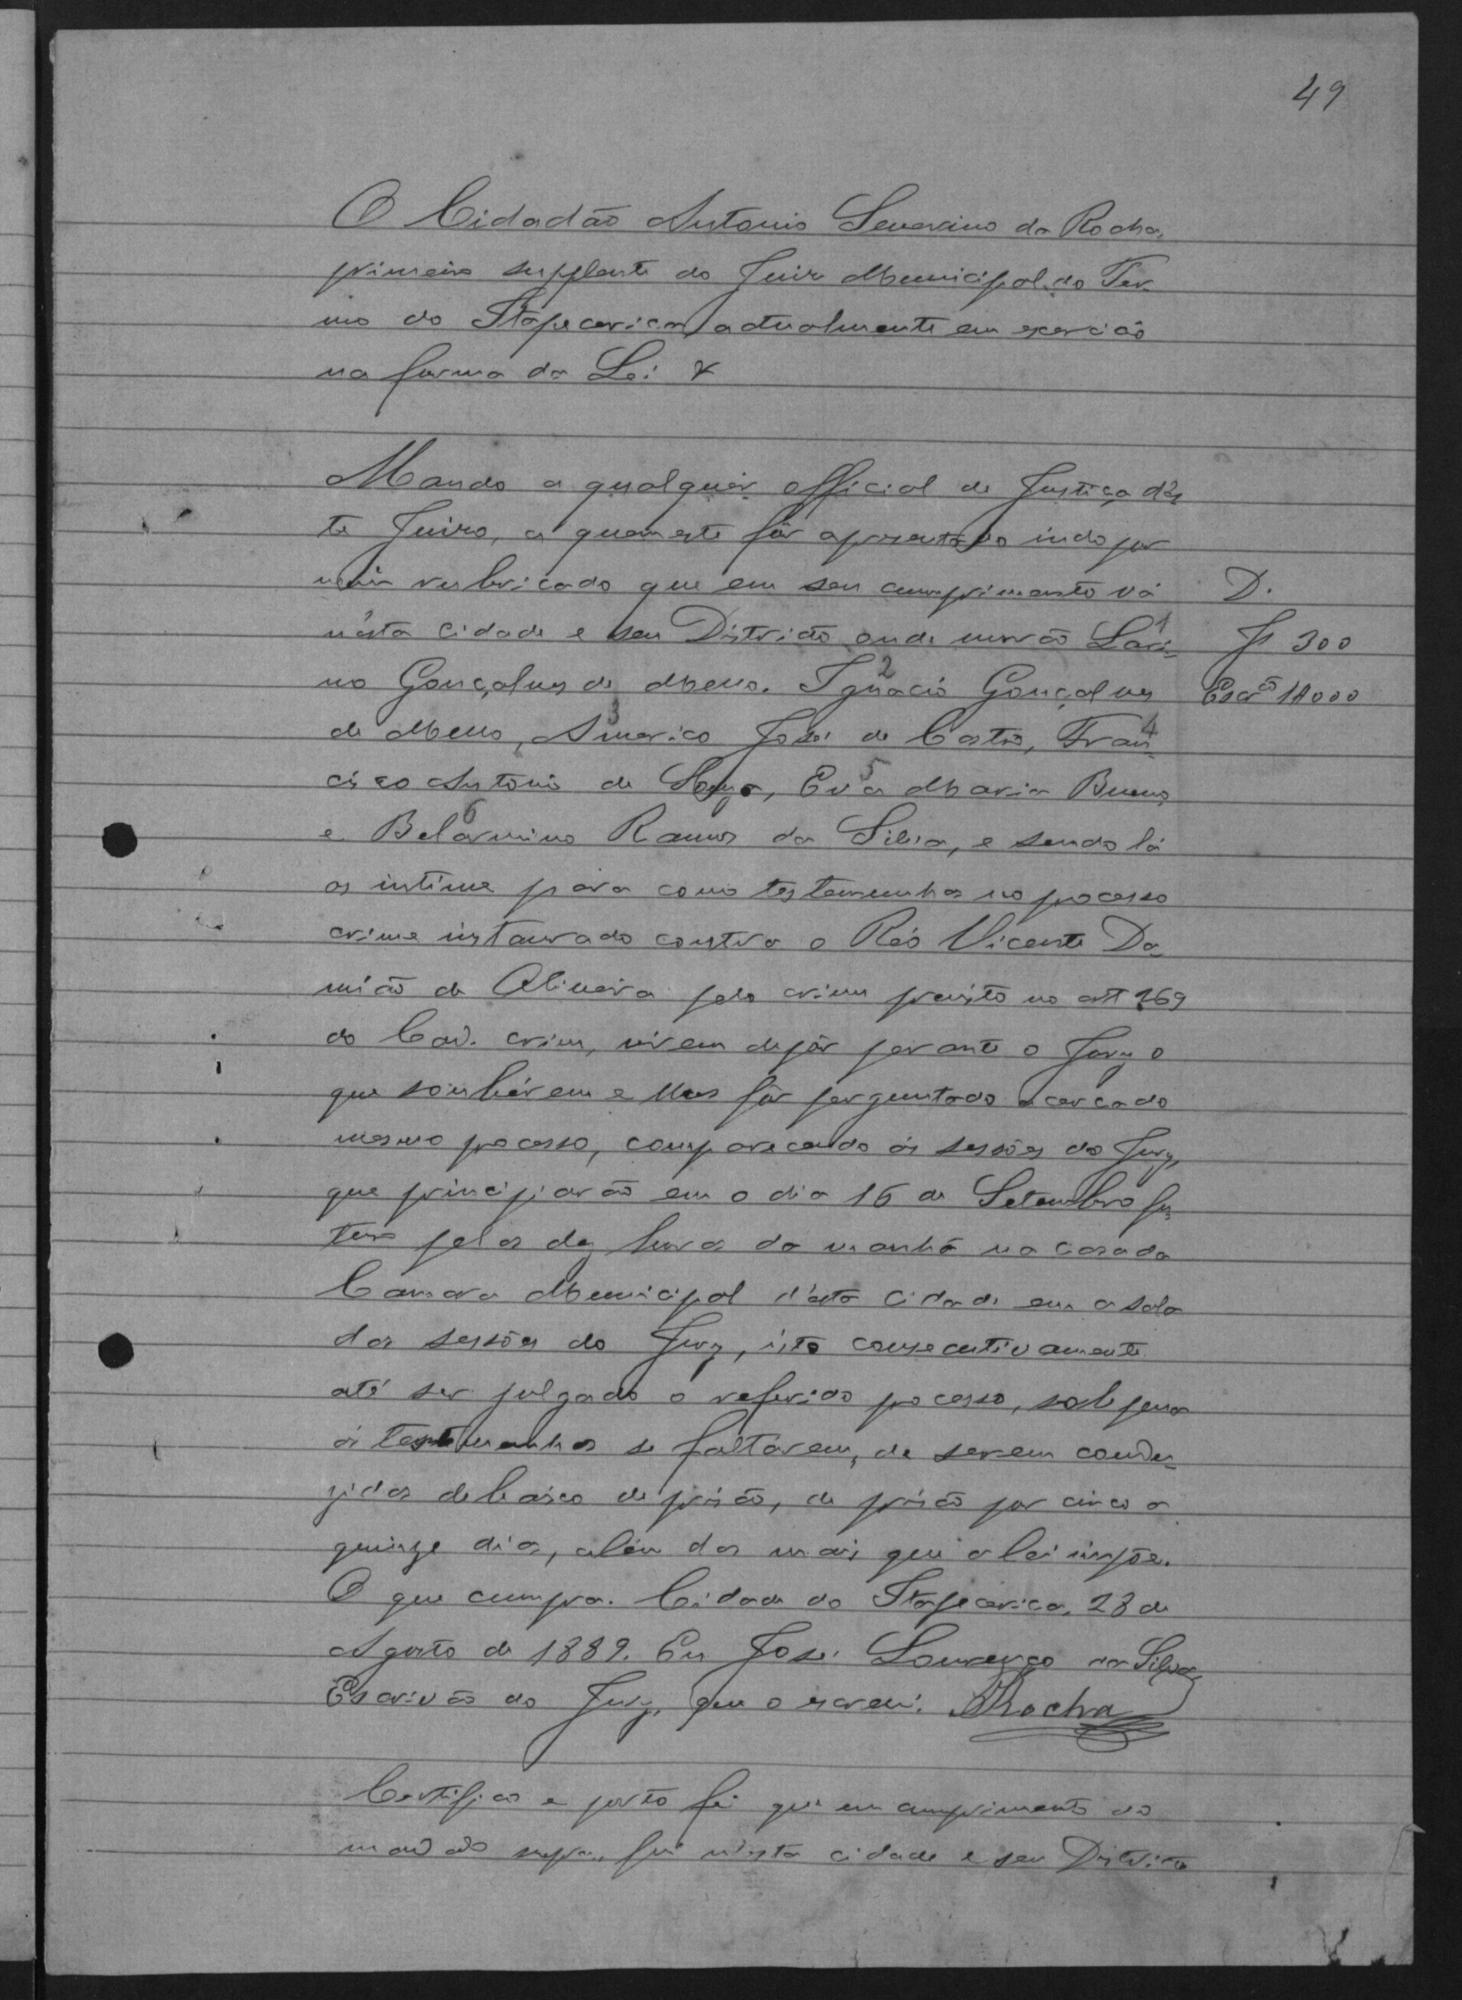 49
O Cidadão Antonio Severino da Rocha,
primeiro supplente do Juiz Municipal do Ter-
mo do Itapecerica, actualmente em exercicio
na forma da Lei &
Mando a qualquer official de Justiça d'es
te Juizo, a quem este fôr apresentado indo por
mim rubricado que em seu cumprimento vá
D.
n'esta cidade e seu Districto onde morão
1
Js 300
no Gonçalves de Mello. Ignacio Gonçalves
2
Escrão 1$000
de Mello, Americo José de Castro, Fran-
3
4
cisco Antonio de Souza, Eva Maria Bueno,
5
e Belarmino Ramos da Silva, e sendo lá
6
os intime para como testemunhas no processo
crime instaurado contra o Réo Vicente Da-
mião de Oliveira pelo crime previsto no art 269
do Cod. crim, virem depôr perante o Jury o
que soubérem e lhes fôr perguntado acerca do
mesmo processo, comparecendo ás sessões do Jury,
que principiarão em o dia 16 de Setembro fu-
turo pelas dez horas da manhã na casa da
Camara Municipal d'esta cidade em a sala
das sessões do Jury, isto consecutivamente
até ser julgado o referido processo, sob pena
ás testemunhas se faltárem, de serem condu-
zidas debaixo de prisão, de prisão por cinco a
quinze dias, além das mais que a lei impõe.
O que cumpra. Cidade do Itapecerica, 28 de
Agosto de 1889. Eu José Lourenço da Silva,
Escrivão do Jury, que o escrevi. Rocha
Certifico e porto fé que em cumprimento do
mandado supra, fui n'esta cidade e seu Districto